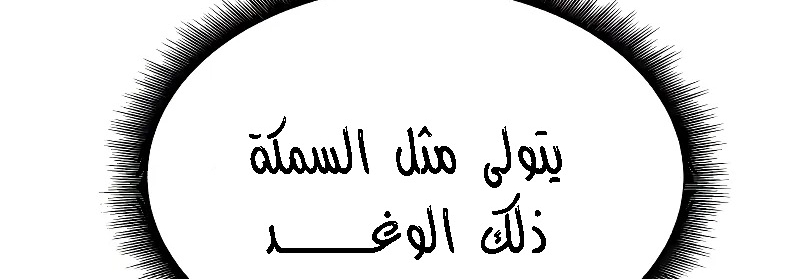 يتولى مثل السمكة
ذلك الوغـــــد